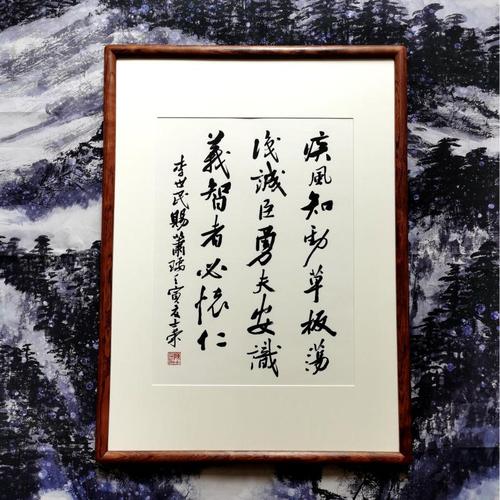 疾風知勁草板蕩
識誠臣勇夫安識
義智者必懷仁
李世民賜蕭瑀壬寅士榮